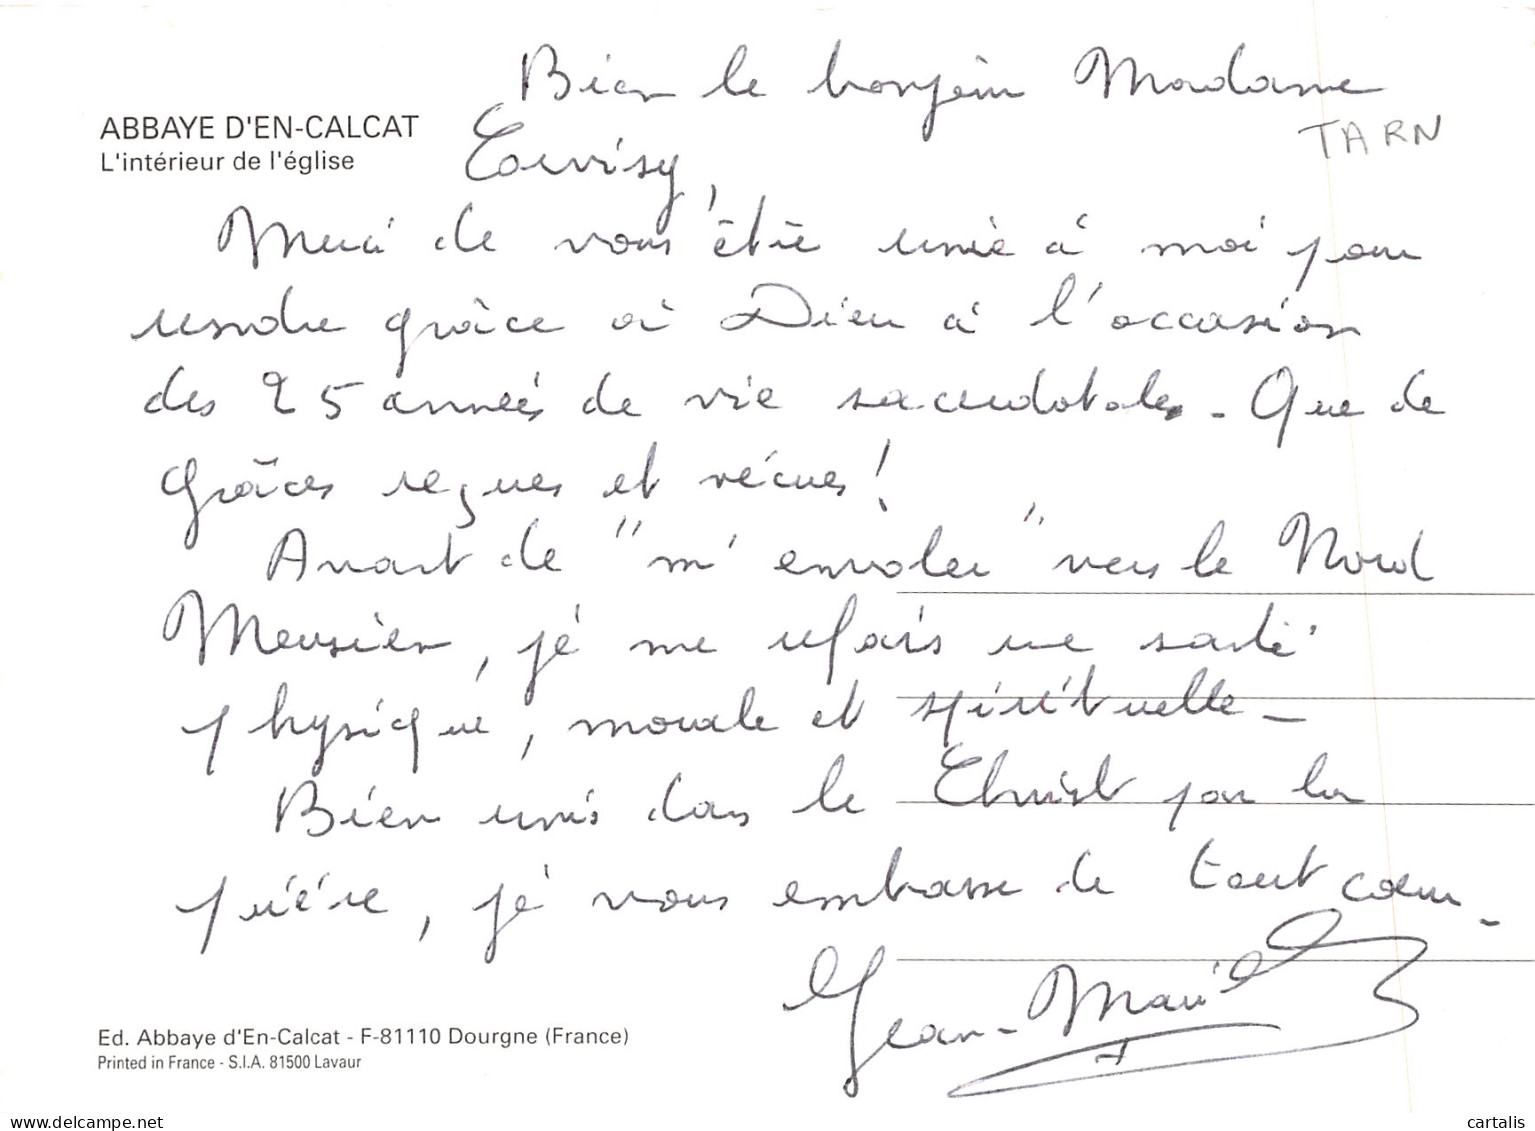 Bien le bonjour Madame
TARN
ABBAYE D'EN-CALCAT
L'intérieur de l'église
Merci de vous être unie à moi pour
rendre grâce à Dieu à l'occasion
des 25 années de vie sacerdotale. Que de
grâces reçues et vécues !
Avant de "m'envoler" vers le Nord
, je me refais une santé
physique, morale et spirituelle -
Bien unis dans le Christ par la
prière, je vous embrasse de tout cœur -
Jean-Marie
Ed. Abbaye d'En-Calcat - F-81110 Dourgne (France)
Printed in France - S.I.A. 81500 Lavaur
www.delcampe.net
cartalis